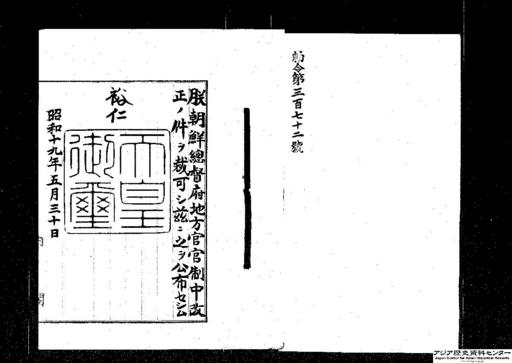 勅令第三百七十二號
朕朝鮮總督府地方官官制中改
正ノ件ヲ裁可シ茲ニ之ヲ公布セシム
裕仁
天皇
御璽
昭和十九年五月三十日
内閣
アジア歴史資料センター
Japan Center for Asian Historical Records